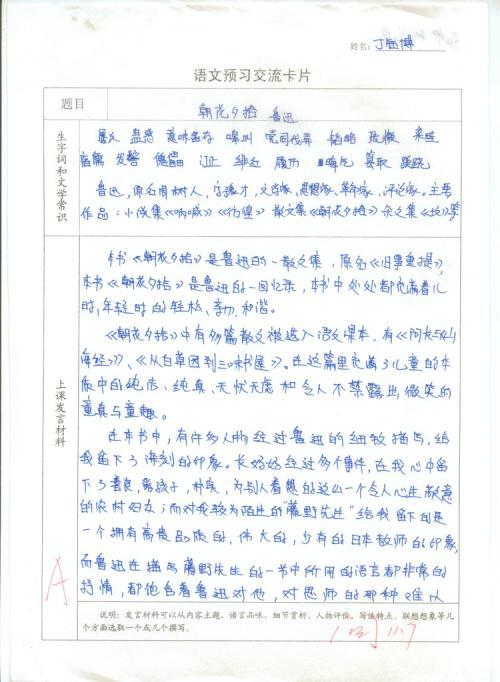 姓名: 丁钰博
语文预习交流卡片
题目
朝花夕拾 鲁迅
生字词和文学常识
蛊惑 意味 嗥叫 党同伐异 韬略
发髻 傀儡 诃 绯红 履历 晦气 蹊跷
鲁迅，原名周树人，字豫才，文学家、思想家、革命家、评论家。主要
作品：小说集《呐喊》《彷徨》散文集《朝花夕拾》杂文集《坟》等
上课发言材料
本书《朝花夕拾》是鲁迅的一散文集，原名《旧事重提》，
本书《朝花夕拾》是鲁迅的一回忆录，本书中处处都充满着儿
时，年轻时的轻松、亲切、和谐。
《朝花夕拾》中有多篇散文被选入语文课本，有《阿长与山
海经》》、《从百草园到三味书屋》。在这篇里充满了儿童的本
质中的纯洁、纯真、无忧无虑和令人不禁露出微笑的
童真与童趣。
在本书中，有许多人物经过鲁迅的细致描写，给
我留下了深刻的印象。长妈妈经过多个事件，在我心中留
下了善良，爱孩子，朴实，为别人着想的这么一个令人心生敬意
的农村妇女；而对我较为陌生的"藤野先生"给我留下的是
一个拥有高贵品质的，伟大的，少有的日本教师的印象，
而鲁迅在描写藤野先生的一书中所用的语言都非常的
抒情，都饱含着鲁迅对他，对恩师的那种难以
A
说明：发言材料可以从内容主题、语言品味、细节赏析、人物评价、写法特点、联想想象等几
个方面选取一个或几个撰写。
11.7